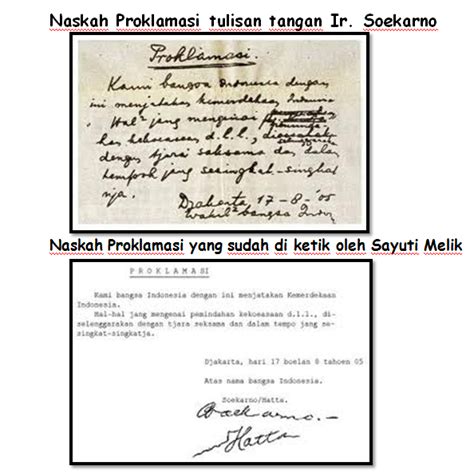 Naskah Proklamasi tulisan tangan Ir. Soekarno
Proklamasi.
Kami bangsa Indonesia dengan
ini menjatakan kemerdekaan Indonesia
Hal² jang mengenai
han kekoeasaan d.l.l.,
dengan tjara saksama dan dalam
tempoh jang sesingkat-singkat
nja.
Djakarta 17-8-'05
Wakil² bangsa Indon
Naskah Proklamasi yang sudah di ketik oleh Sayuti Melik
PROKLAMASI
Kami bangsa Indonesia dengan ini menjatakan Kemerdekaan
Indonesia.
Hal-hal jang mengenai pemindahan kekoeasaan d.l.l., di-
selenggarakan dengan tjara seksama dan dalam tempo jang se-
singkat-singkatja.
Djakarta, hari 17 boelan 8 tahoen 05
Atas nama bangsa Indonesia.
Soekarno/Hatta.
Soekarno.-
Hatta